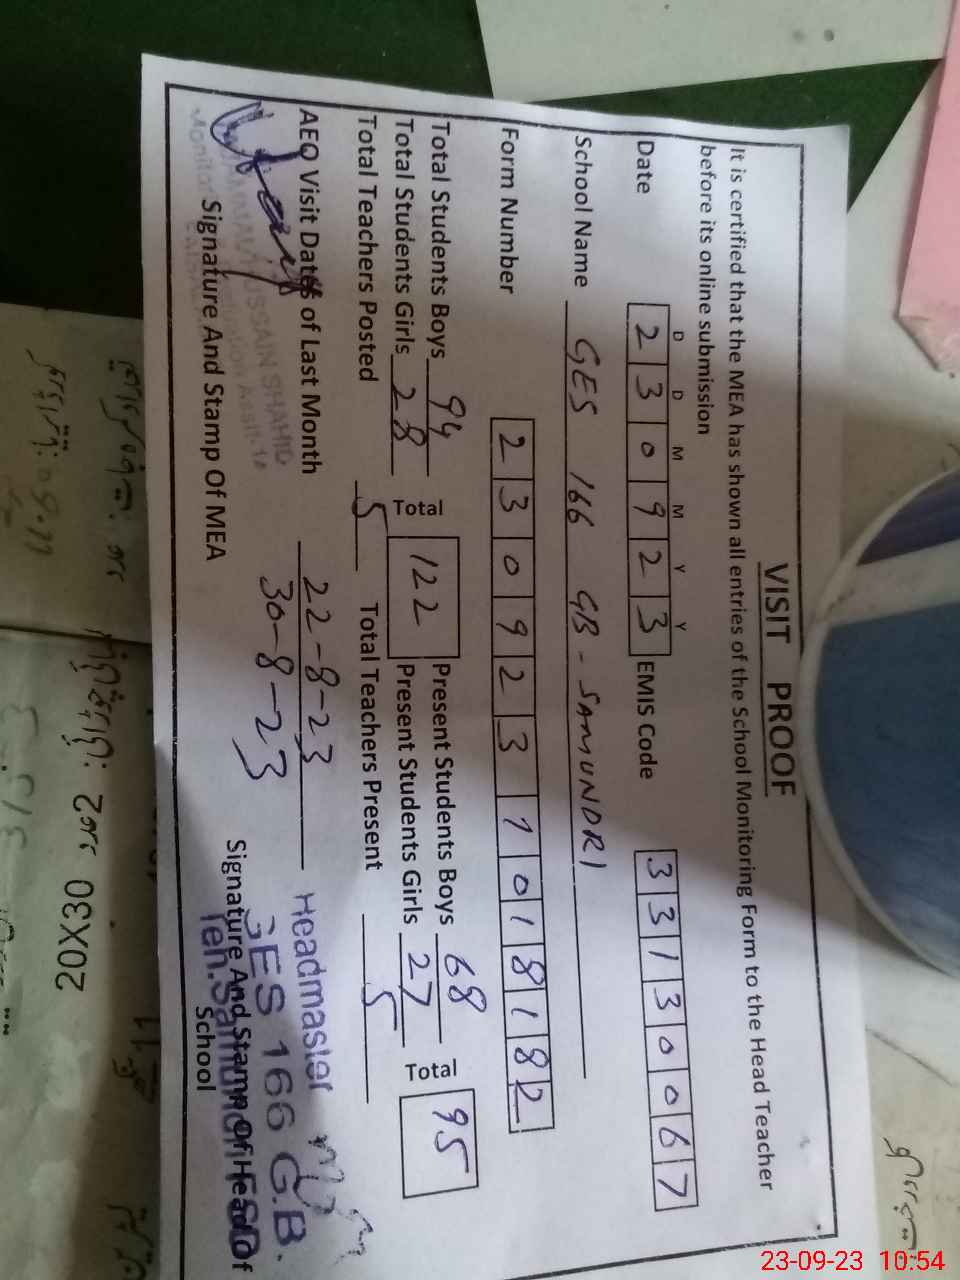 VISIT PROOF
It is certified that the MEA has shown all entries of the School Monitoring Form to the Head Teacher
before its online submission
D D M M Y Y
Date 2 3 0 9 2 3 EMIS Code 3 3 1 3 0 0 6 7
School Name GES 166 GB - SAMUNDRI
Form Number 2 3 0 9 2 3 1 0 1 8 1 8 2
Total Students Boys 94 Present Students Boys 68
Total Students Girls 28 Total 122 Present Students Girls 27 Total 95
Total Teachers Posted 5 Total Teachers Present 5
AEO Visit Dates of Last Month 22-8-23
30-8-23
HUSSAIN SHAHID
Headmaster
GES 166 G.B.
Signature And Stamp Of MEA
Signature And Stamp Of Head Of
School
20X30
23-09-23 10:54